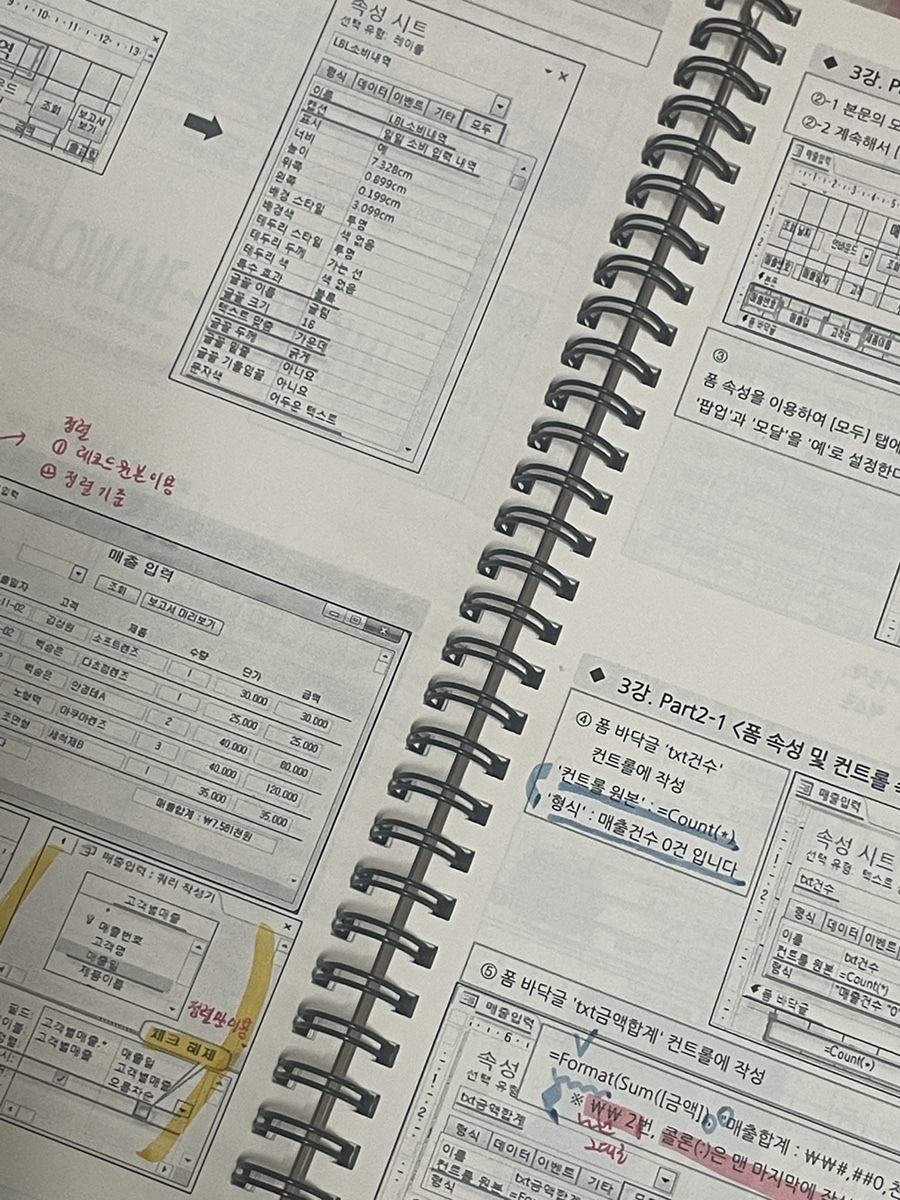 9 · 10 · 11 · 12 · 13
조회
보고서
보기
속성 시트
선택 유형: 레이블
LBL소비내역
형식 데이터 이벤트 기타 모두
이름 LBL소비내역
캡션 일일 소비 입력 내역
표시 예
너비 7.328cm
높이 0.899cm
위쪽 0.199cm
왼쪽 3.099cm
배경 스타일 투명
배경색 색 없음
테두리 스타일 투명
테두리 두께 가는 선
테두리 색 색 없음
특수 효과 볼록
글꼴 이름 굴림
글꼴 크기 16
텍스트 맞춤 가운데
글꼴 두께 굵게
글꼴 밑줄 아니요
글꼴 기울임꼴 아니요
문자색 어두운 텍스트
정렬
① 레코드원본이용
② 정렬기준
매출 입력
조회 보고서 미리보기
고객 제품 수량 단가 금액
11-02 김상원 소프트렌즈 1 30,000 30,000
-02 백승은 다초점렌즈 1 25,000 25,000
백승은 안경테A 2 40,000 80,000
노현덕 아쿠아렌즈 3 40,000 120,000
조연형 세척제B 1 35,000 35,000
매출합계 : ₩7,581천원
매출입력 : 쿼리 작성기
고객별매출
*
매출번호
고객명
매출일
제품이름
정렬만이용
체크 해제
필드 고객별매출.* 매출일
고객별매출 고객별매출
오름차순
◆ 3강. P
②-1 본문의 모
②-2 계속해서 [
매출입력
조회날자 안바운드 조회
매출번호 매출일자 고객
본문
매출번호 매출일 고객명 제품이름
폼 바닥글
③
폼 속성을 이용하여 [모두] 탭에
'팝업'과 '모달'을 '예'로 설정한다
◆ 3강. Part2-1 <폼 속성 및 컨트롤
④ 폼 바닥글 'txt건수'
컨트롤에 작성
'컨트롤 원본' : =Count(*)
'형식' : 매출건수 0건 입니다
매출입력
속성 시트
선택 유형: 텍스트
txt건수
형식 데이터 이벤트
이름 txt건수
컨트롤 원본 =Count(*)
형식 "매출건수 "0"
폼 바닥글
=Count(*)
⑤ 폼 바닥글 'txt금액합계' 컨트롤에 작성
매출입력
6
속성
선택 유형
=Format(Sum([금액]), "매출합계 : ₩₩#,##0,천
※ ₩₩ 2번, 콜론(:)은 맨 마지막에
그대로
txt금액합계
형식 데이터 이벤트 기타 모두
이름 txt금액합계
컨트롤 원본
형식